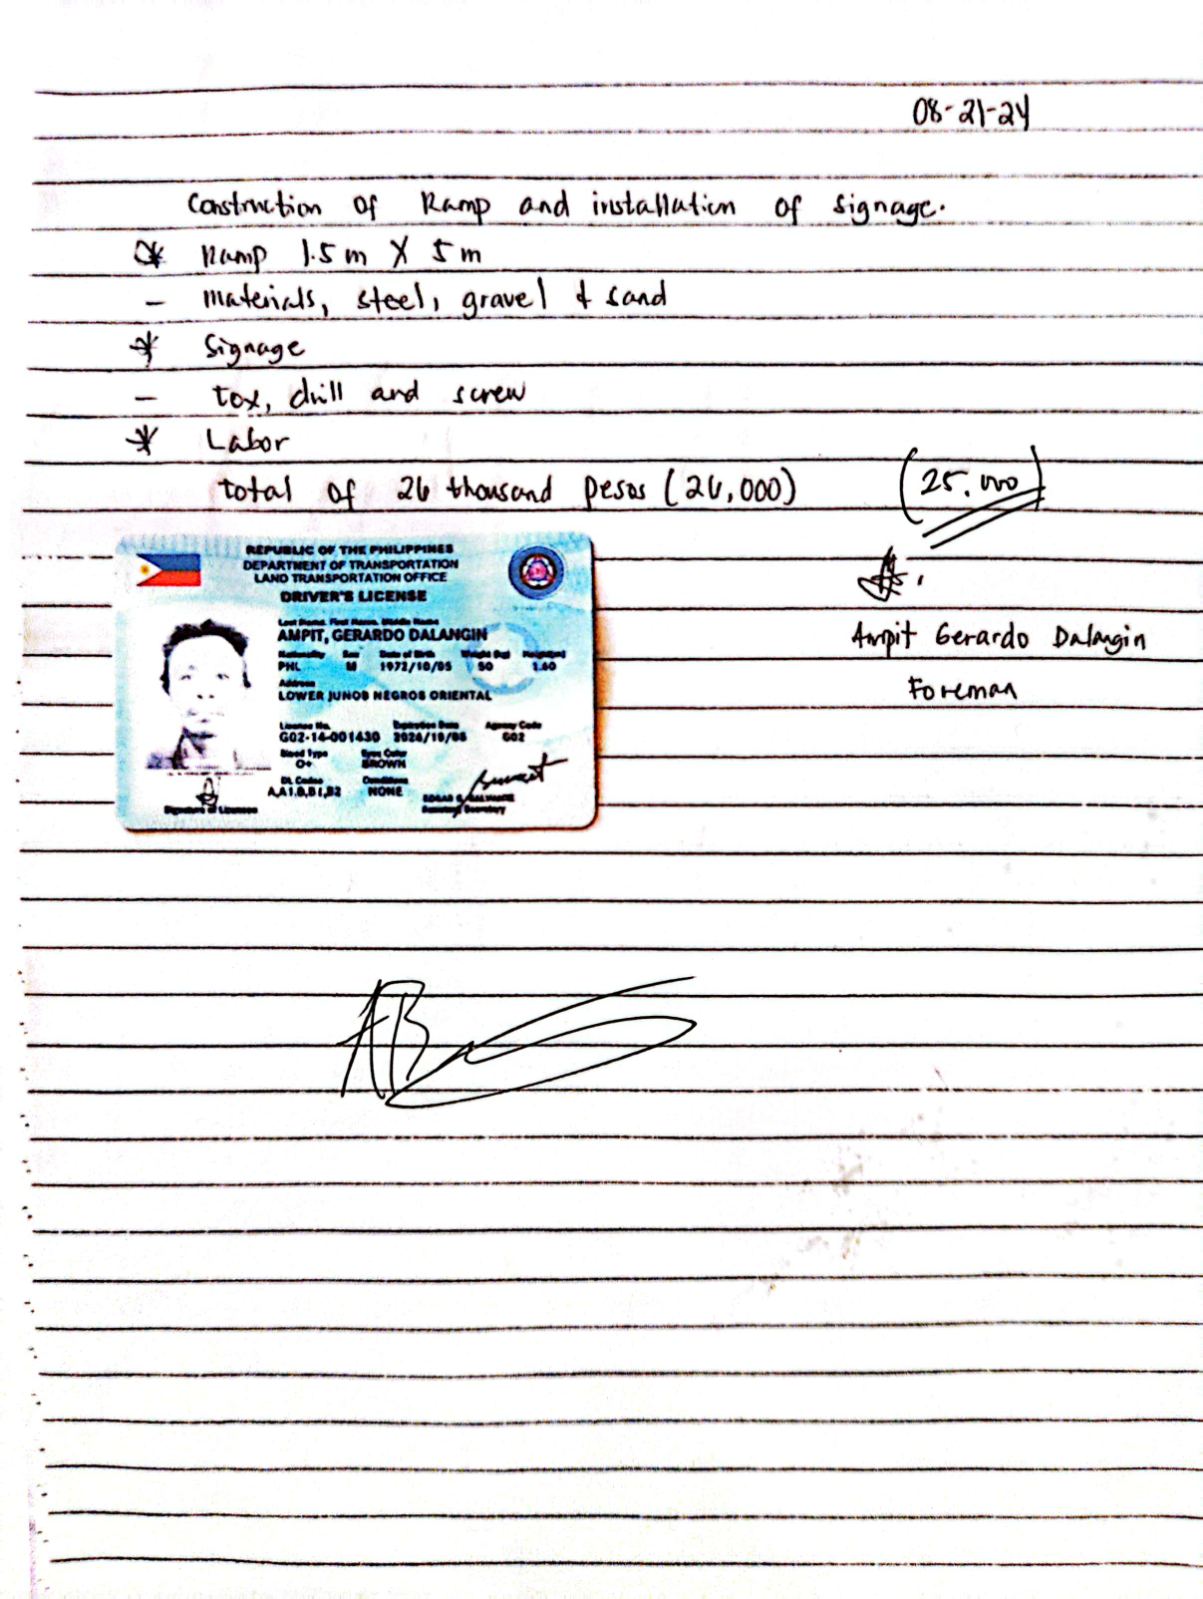 08-21-24
Construction of Ramp and installation of signage.
* Ramp 1.5m X 5m
- materials, steel, gravel & sand
* Signage
- tox, drill and screw
* Labor
total of 26 thousand pesos (26,000) (25.000)
REPUBLIC OF THE PHILIPPINES
DEPARTMENT OF TRANSPORTATION
LAND TRANSPORTATION OFFICE
DRIVER'S LICENSE
Last Name, First Name, Middle Name
AMPIT, GERARDO DALANGIN
Nationality Sex Date of Birth Weight (kg) Height(m)
PHL M 1972/10/05 50 1.60
Address
LOWER JUNOB NEGROS ORIENTAL
License No. Expiration Date Agency Code
G02-14-001430 G02
Blood Type Eyes Color
O+ BROWN
DL Codes Conditions
A,A1,B,B1,B2 NONE
Signature of Licensee
Assistant Secretary
Ampit Gerardo Dalangin
Foreman